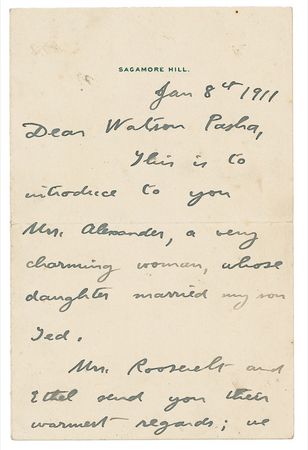 SAGAMORE HILL.
Jan 8th 1911
Dear Watson Pasha,
This is to
introduce to you
Mrs. Alexander, a very
charming woman, whose
daughter married my son
Ted.
Mrs. Roosevelt and
Ethel send you their
warmest regards; we